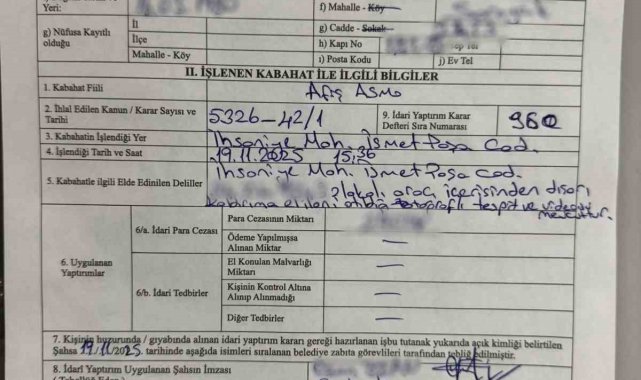 Yeri:
f) Mahalle - Köy
g) Nüfusa Kayıtlı olduğu
İl
g) Cadde - Sokak
İlçe
h) Kapı No
Mahalle - Köy
i) Posta Kodu
j) Ev Tel
II. İŞLENEN KABAHAT İLE İLGİLİ BİLGİLER
1. Kabahat Fiili
Afiş Asma
2. İhlal Edilen Kanun / Karar Sayısı ve Tarihi
5326-42/1
9. İdari Yaptırım Karar Defteri Sıra Numarası
960
3. Kabahatin İşlendiği Yer
İhsaniye Mah. İsmet Paşa Cad.
4. İşlendiği Tarih ve Saat
19.11.2025 15:36
5. Kabahatle ilgili Elde Edinilen Deliller
İhsaniye Mah. İsmet Paşa Cad.
plakalı araç içerisinden dışarı
fotoğraflı tespit ve videosu
mevcuttur.
6. Uygulanan Yaptırımlar
6/a. İdari Para Cezası
Para Cezasının Miktarı
Ödeme Yapılmışsa Alınan Miktar
—
6/b. İdari Tedbirler
El Konulan Malvarlığı Miktarı
—
Kişinin Kontrol Altına Alınıp Alınmadığı
—
Diğer Tedbirler
—
7. Kişinin huzurunda / gıyabında alınan idari yaptırım kararı gereği hazırlanan işbu tutanak yukarıda açık kimliği belirtilen
Şahsa 19/11/2025. tarihinde aşağıda isimleri sıralanan belediye zabıta görevlileri tarafından tebliğ edilmiştir.
8. İdari Yaptırım Uygulanan Şahsın İmzası